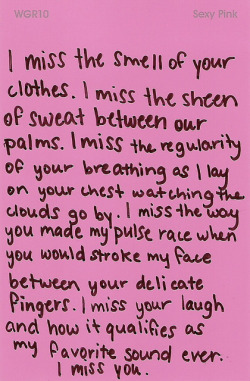 WGR10 Sexy Pink
I miss the smell of your
clothes. I miss the sheen
of sweat between our
palms. I miss the regularity
of your breathing as I lay
on your chest watching the
clouds go by. I miss the way
you made my pulse race when
you would stroke my face
between your delicate
fingers. I miss your laugh
and how it qualifies as
my favorite sound ever.
I miss you.